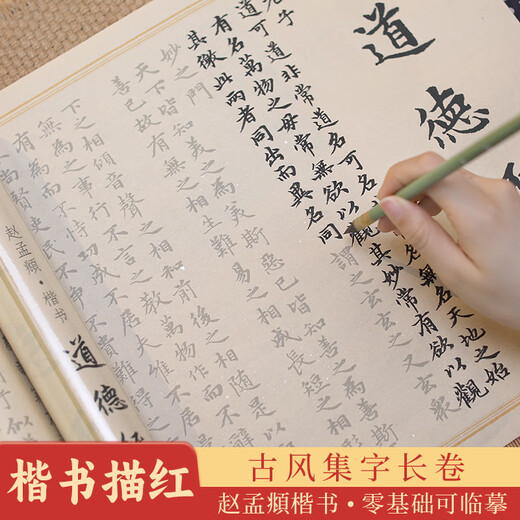 道德
子
道可道非常道名可名
名無名天地之始
有名萬物之母常無欲以觀其妙常有欲以觀
其徼此兩者同出而異名同謂之玄玄之又玄衆
妙之門
天下皆知美之為美斯惡已皆知善之為善斯
善已故有無之相生難易之相成長短之相形
下之相傾音聲之相和前後之相隨是
無為之事行不言之教萬物作而不辭
有為而不功成不居夫維不居
尚賢使民不爭不貴難得之
赵孟頫·楷书
道德经
楷书描红
古风集字长卷
赵孟頫楷书·零基础可临摹